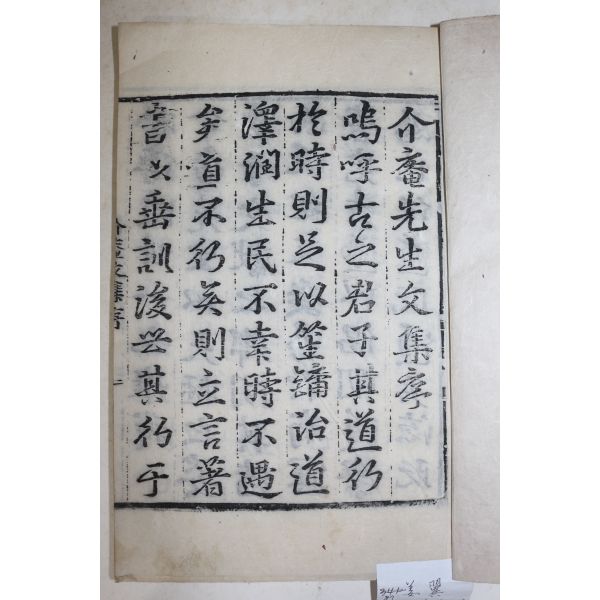 介庵先生文集序
嗚呼古之君子其道行
於時則足以笙鏞治道
澤潤生民不幸時不遇
矣道不行矣則立言著
書以垂訓後世其行于
介庵文集序
一
341